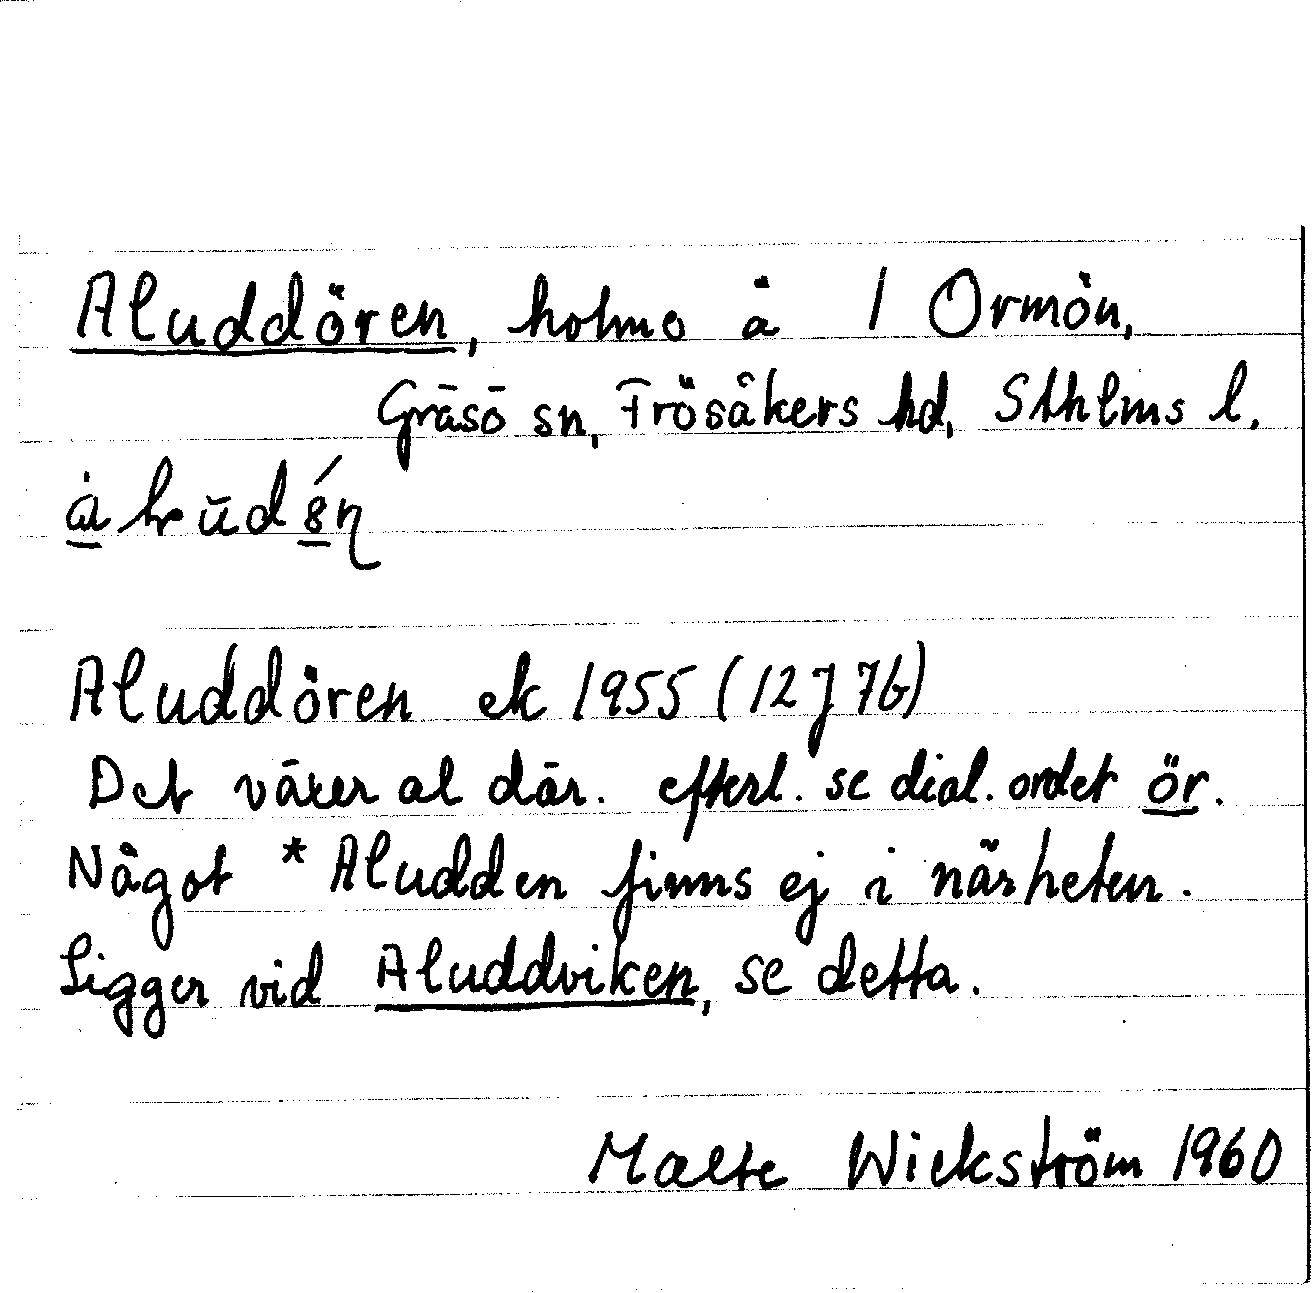 Aluddören, holme å 1 Ormön,
Gräsö sn, Frösåkers hd, Sthlms l.
Aluddören ek 1955 (12J 7b)
Det växer al där. efterl. se dial. ordet ör.
Något *Aludden finns ej i närheten.
Ligger vid Aluddviken, se detta.
Malte Wickström 1960